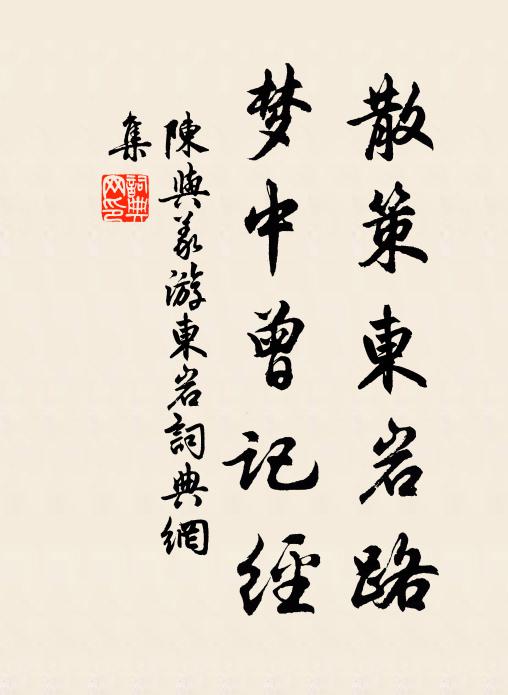 散策東岩路
梦中曾记經
陳與义游東岩詞典網
集
詞典
网印